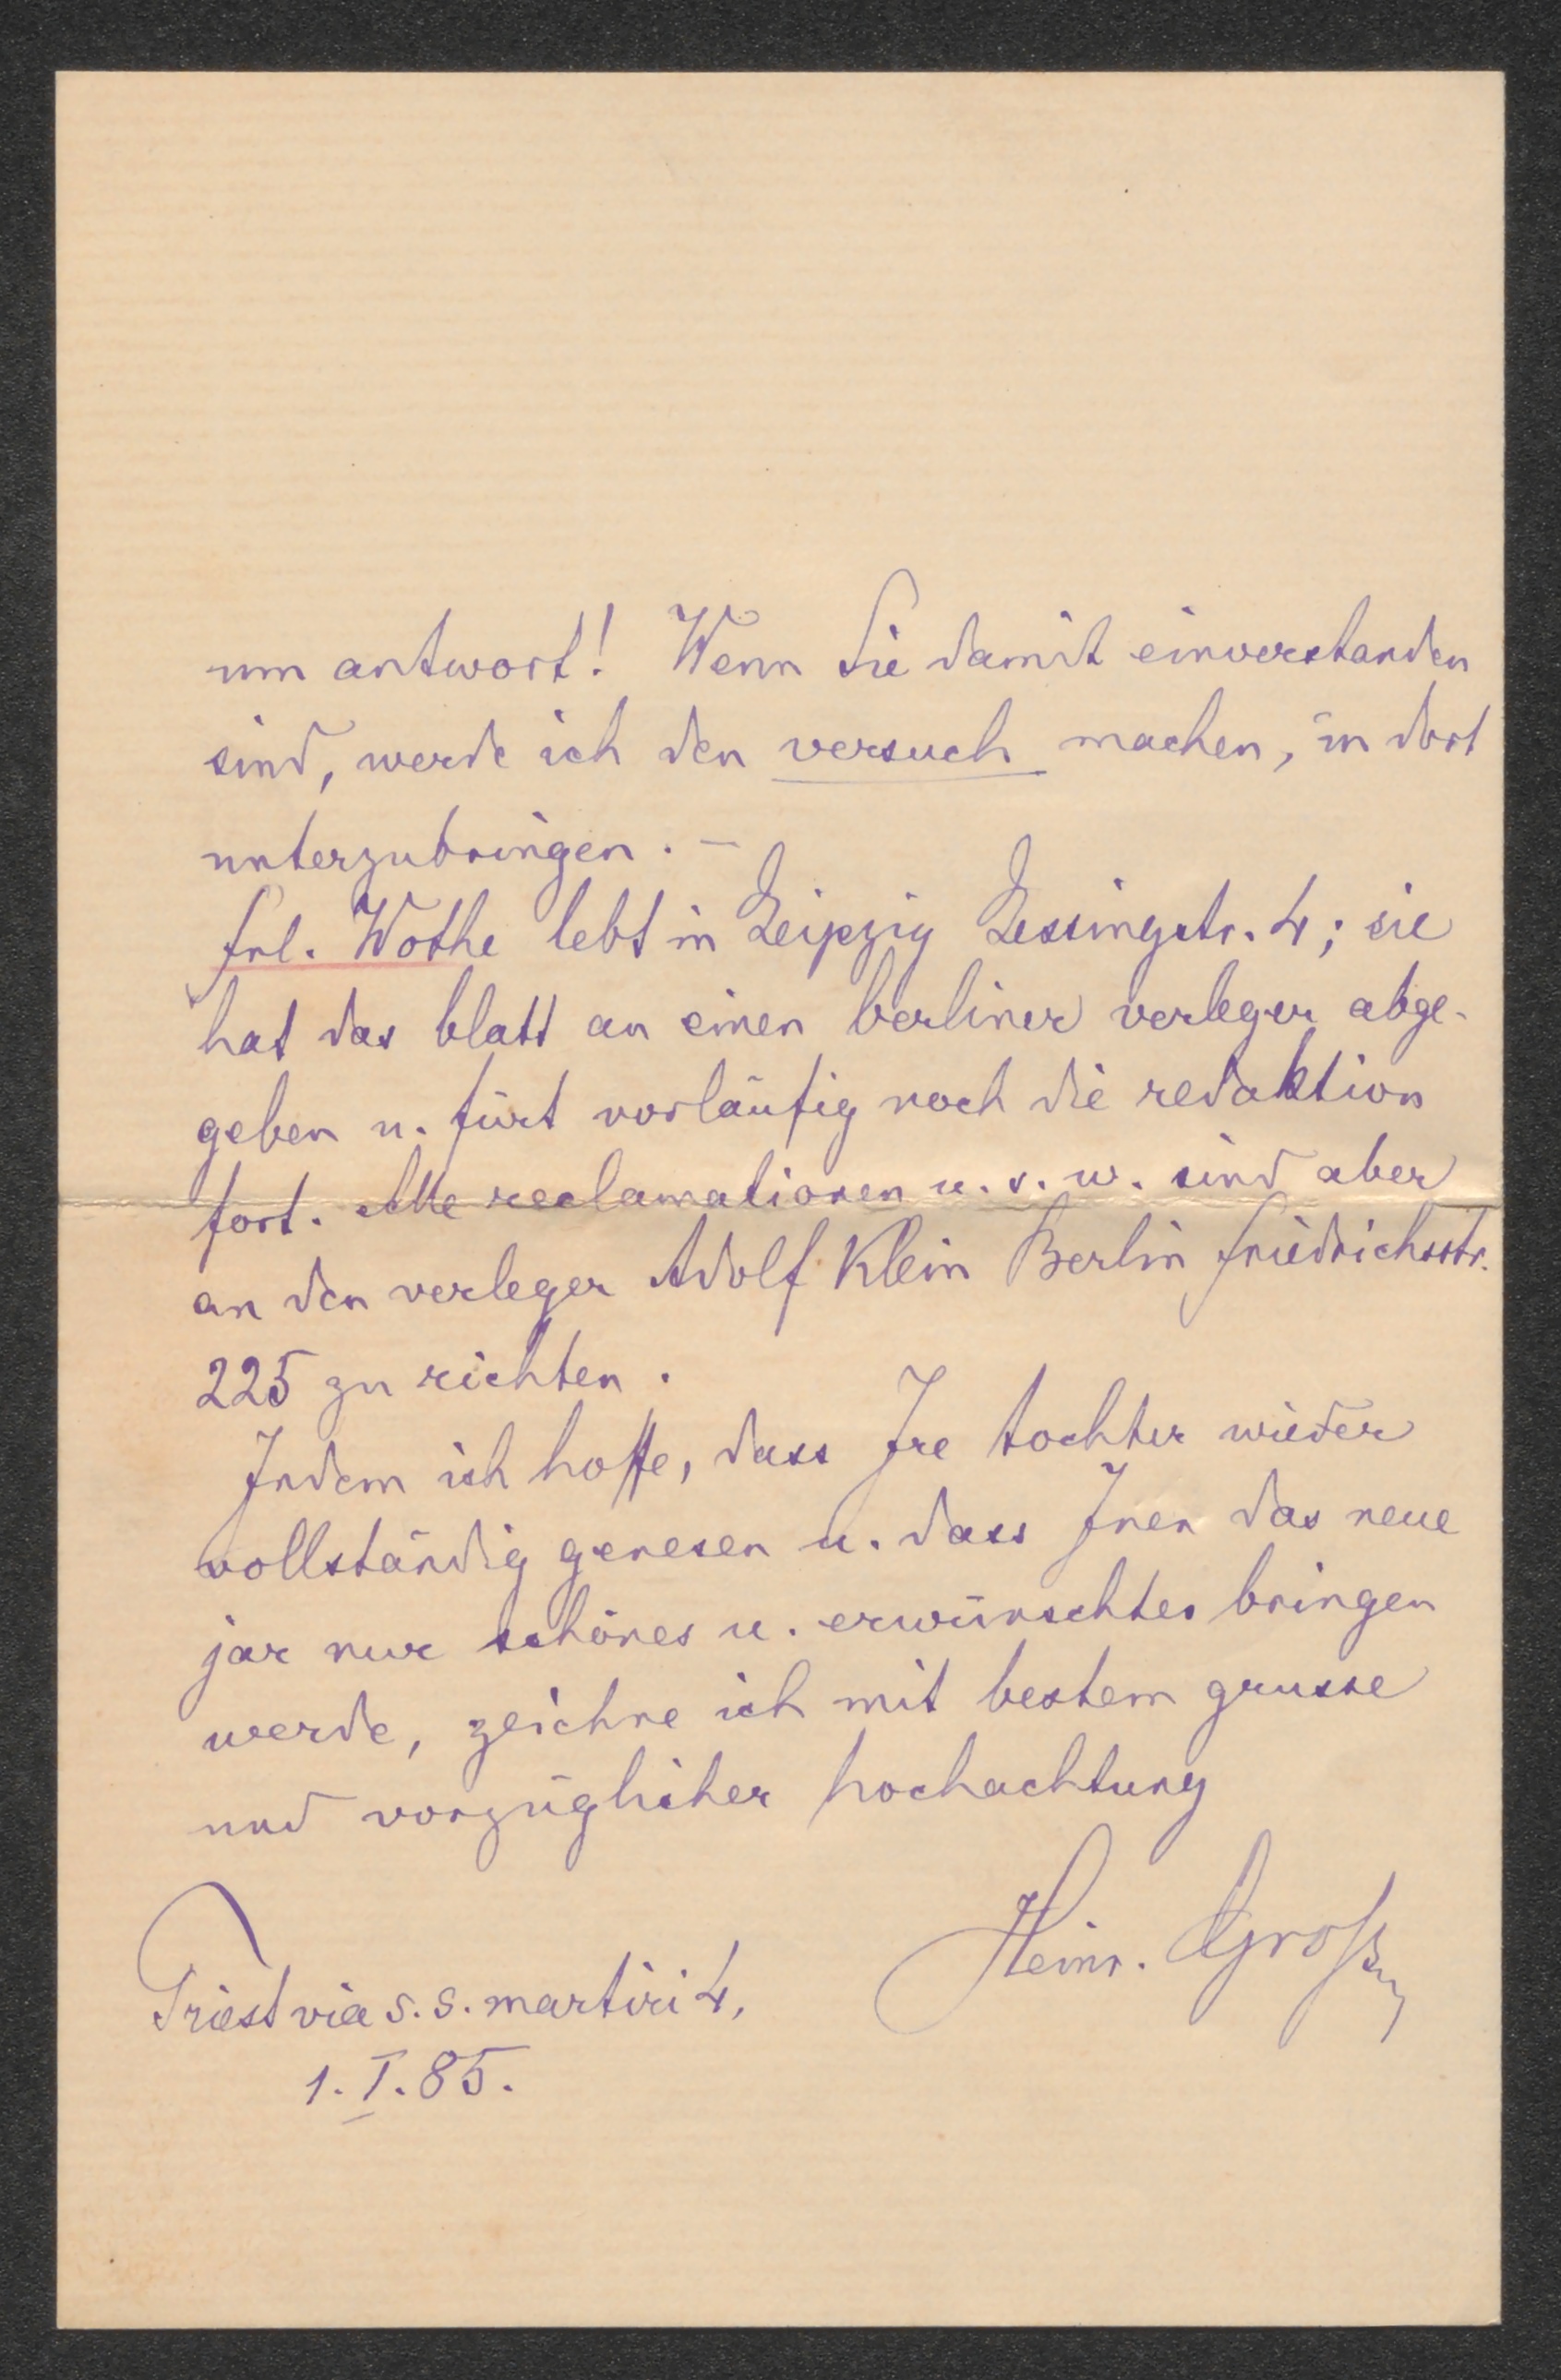 um antwort! Wenn Sie damit einverstanden
sind, werde ich den versuch machen, in dort
unterzubringen. –
frl. Wothe lebt in Leipzig Lessingstr. 4; sie
hat das blatt an einen berliner verleger abge-
geben u. fürt vorläufig noch die redaktion
fort. Alle reclamationen u. s. w. sind aber
an den verleger Adolf Klein Berlin friedrichsstr.
225 zu richten.
Indem ich hoffe, dass Ire tochter wieder
vollständig genesen u. dass Inen das neue
jar nur schönes u. erwünschtes bringen
werde, zeichne ich mit bestem grusse
und vorzüglicher hochachtung
Heinr. Groß
Triest via s. s. martiri 4,
1. I. 85.